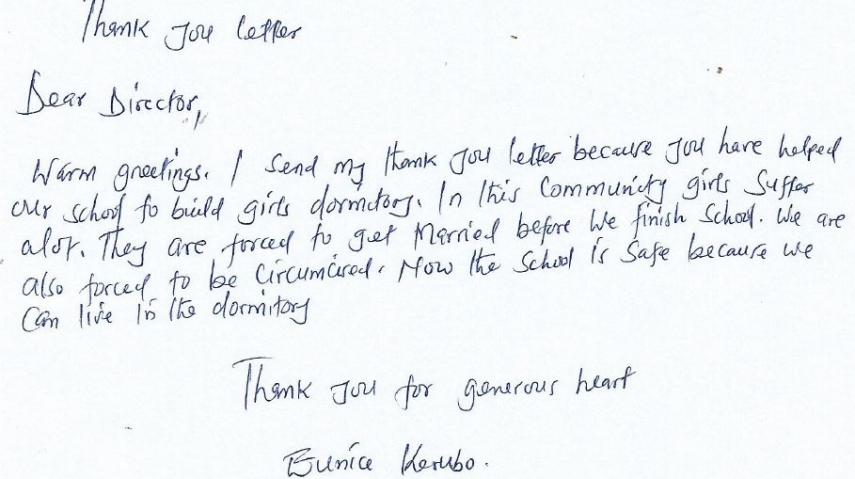 Thank you letter
Dear Director,
Warm greetings. I send my thank you letter because you have helped
our school to build girls dormitory. In this Community girls Suffer
alot. They are forced to get Married before We finish School. We are
also forced to be Circumcised. Now the School is Safe because we
Can live in the dormitory
Thank you for generous heart
Eunice Kerubo.